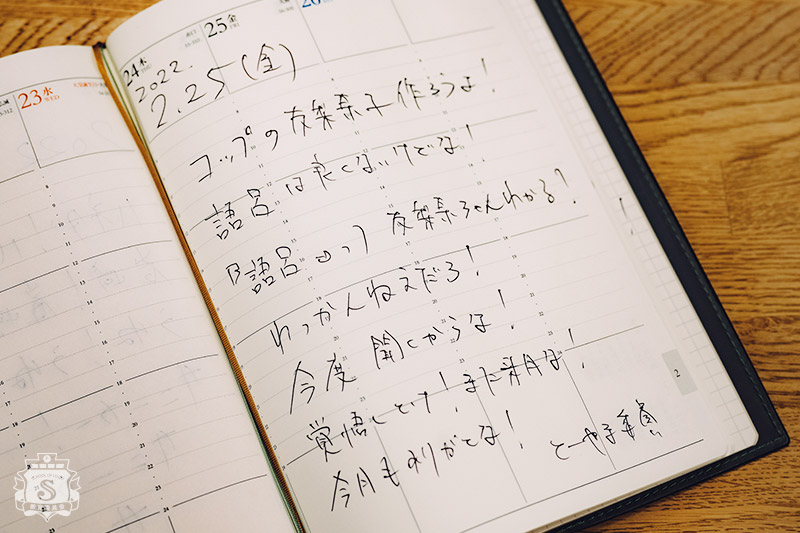 23 水 WED
24 木
25 金
26
2022.
2.25(金)
コップの友梨奈子作ろうよ!
語呂は良くないけどな!
『語呂』って友梨奈ちゃんわかる?
わっかんねえだろ!
今度聞くからな!
覚悟しとけ!また来月な!
今月もありがとな!
とーやま委員
2
S